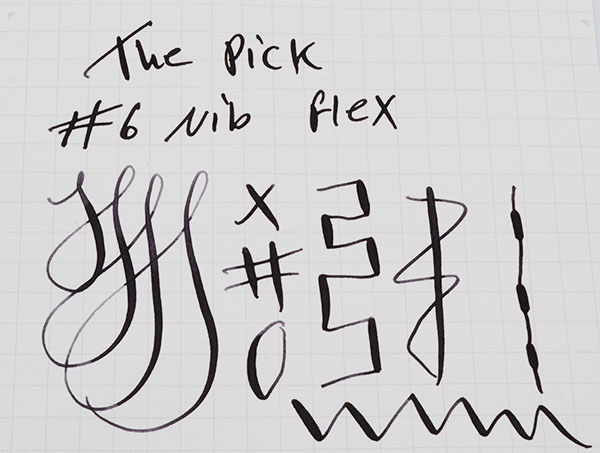 The Pick
#6 Nib Flex
X
#
O